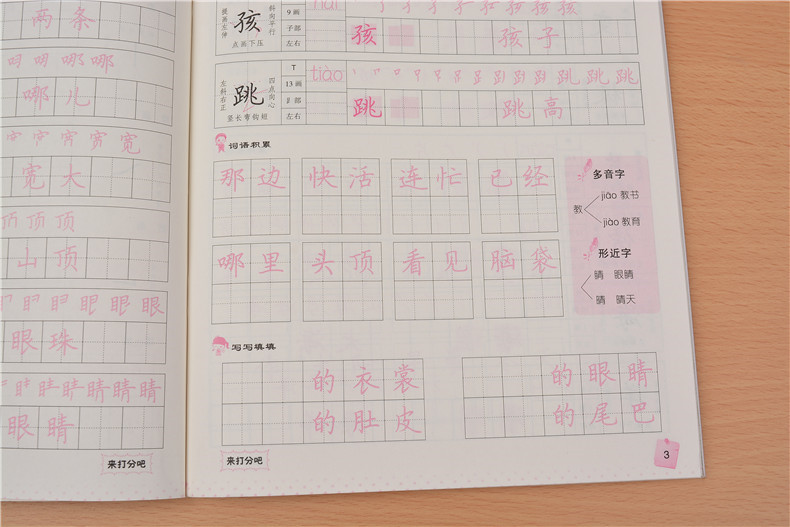 两条
哪哪
哪儿
宽宽
宽大
顶顶
山顶
眼眼
眼珠
睛睛
眼睛
来打分吧
提画左伸
孩
斜向平行
点画下压
9画
子部
左右
孩 孩子
左斜右正
跳
四点向心
竖长弯钩短
T
13画
左右
tiào
跳 跳高
词语积累
那边 快活 连忙 已经
哪里 头顶 看见 脑袋
多音字
教
jiāo 教书
jiào 教育
形近字
睛 眼睛
晴 晴天
写写填填
的衣裳 的眼睛
的肚皮 的尾巴
来打分吧
3